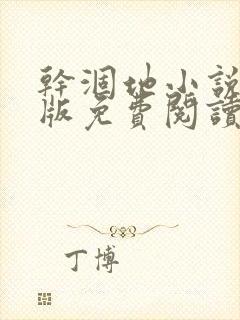 幹涸地小說
版免費閱讀
丁博